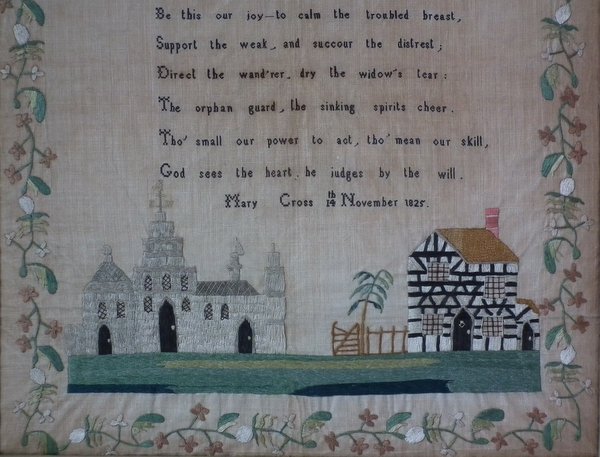 Be this our joy—to calm the troubled breast,
Support the weak, and succour the distrest;
Direct the wand'rer, dry the widow's tear:
The orphan guard, the sinking spirits cheer.
Tho' small our power to act, tho' mean our skill,
God sees the heart, he judges by the will.
Mary Cross 14th November 1825.